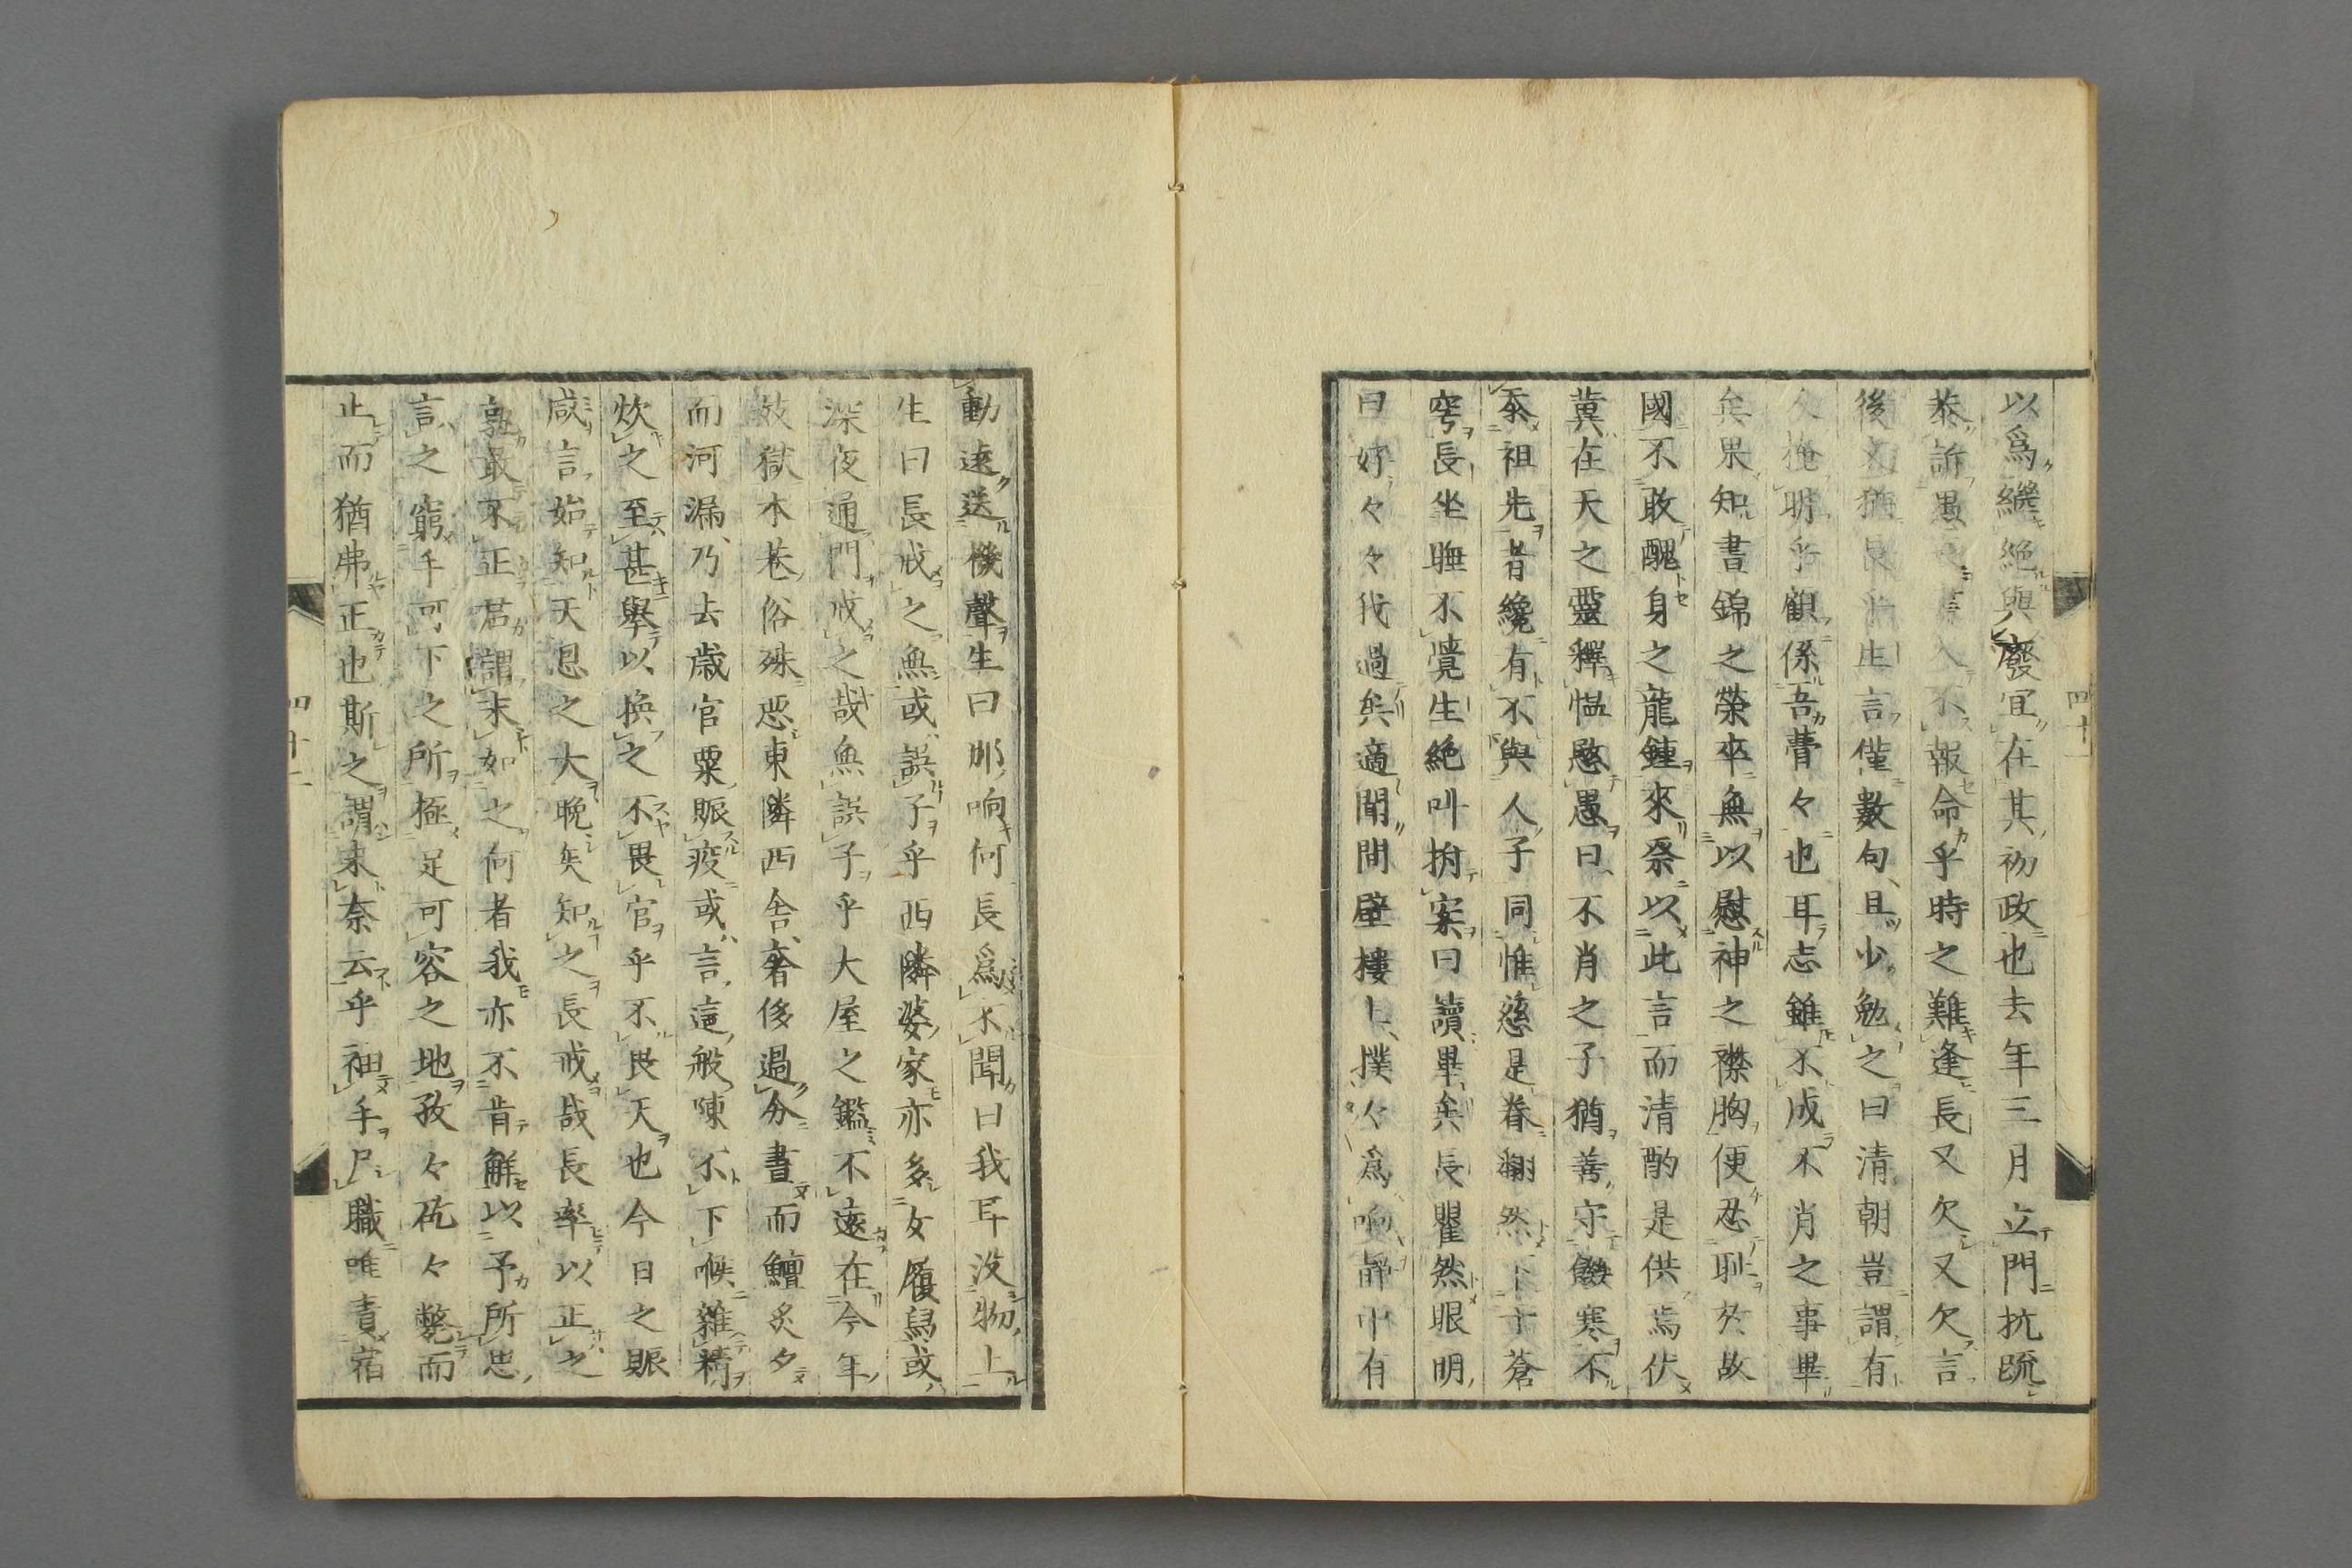 以爲繼絶與廢宜在其初政也去年三月立門抗䟽
恭訴愚入不報命乎時之難逢長又欠又欠言
後文猶長生言僅數句且少勉之曰清朝豈謂有
久掩明乎顧係吾瞢々也耳志雖不成不肖之事畢
矣果知晝錦之榮卒無以慰神之襟胸便忍耻矣故
國不敢醜身之龍鍾來祭以此言而清酌是供焉伏
冀在天之靈釋慍愍愚曰不肖之子猶善守餓寒不
忝祖先者纔有不與人子同惟慈是眷翻然下于蒼
穹長坐睡不覺生絶叫拊案曰讀畢矣長瞿然眼明
曰好々々我過矣適聞間壁樓上撲々爲响
四十一
動遠送機聲生曰那响何長爲不聞曰我耳没物上
生曰長戒之無或誤子乎西隣婆家亦多女履舄或
深夜通門戒之哉無誤子乎大屋之鑑不遠在今年
敖獄本巷俗殊惡東隣西舎奢侈過分晝而鱣炙夕
而河漏乃去歳官粟賑疫或言這般陳不下喉雜糯
炊之至甚擧以換之不畏官乎不畏天也今日之賑
咸言始知天恩之大晩矣知之長戒哉長率以正之
孰最不正君謂末如之何者我亦不肯解以予所思
言之窮乎可下之所極足可容之地孜々矻々斃而
止而猶弗正也斯之謂末奈云乎袖手尸職唯責宿
四十二